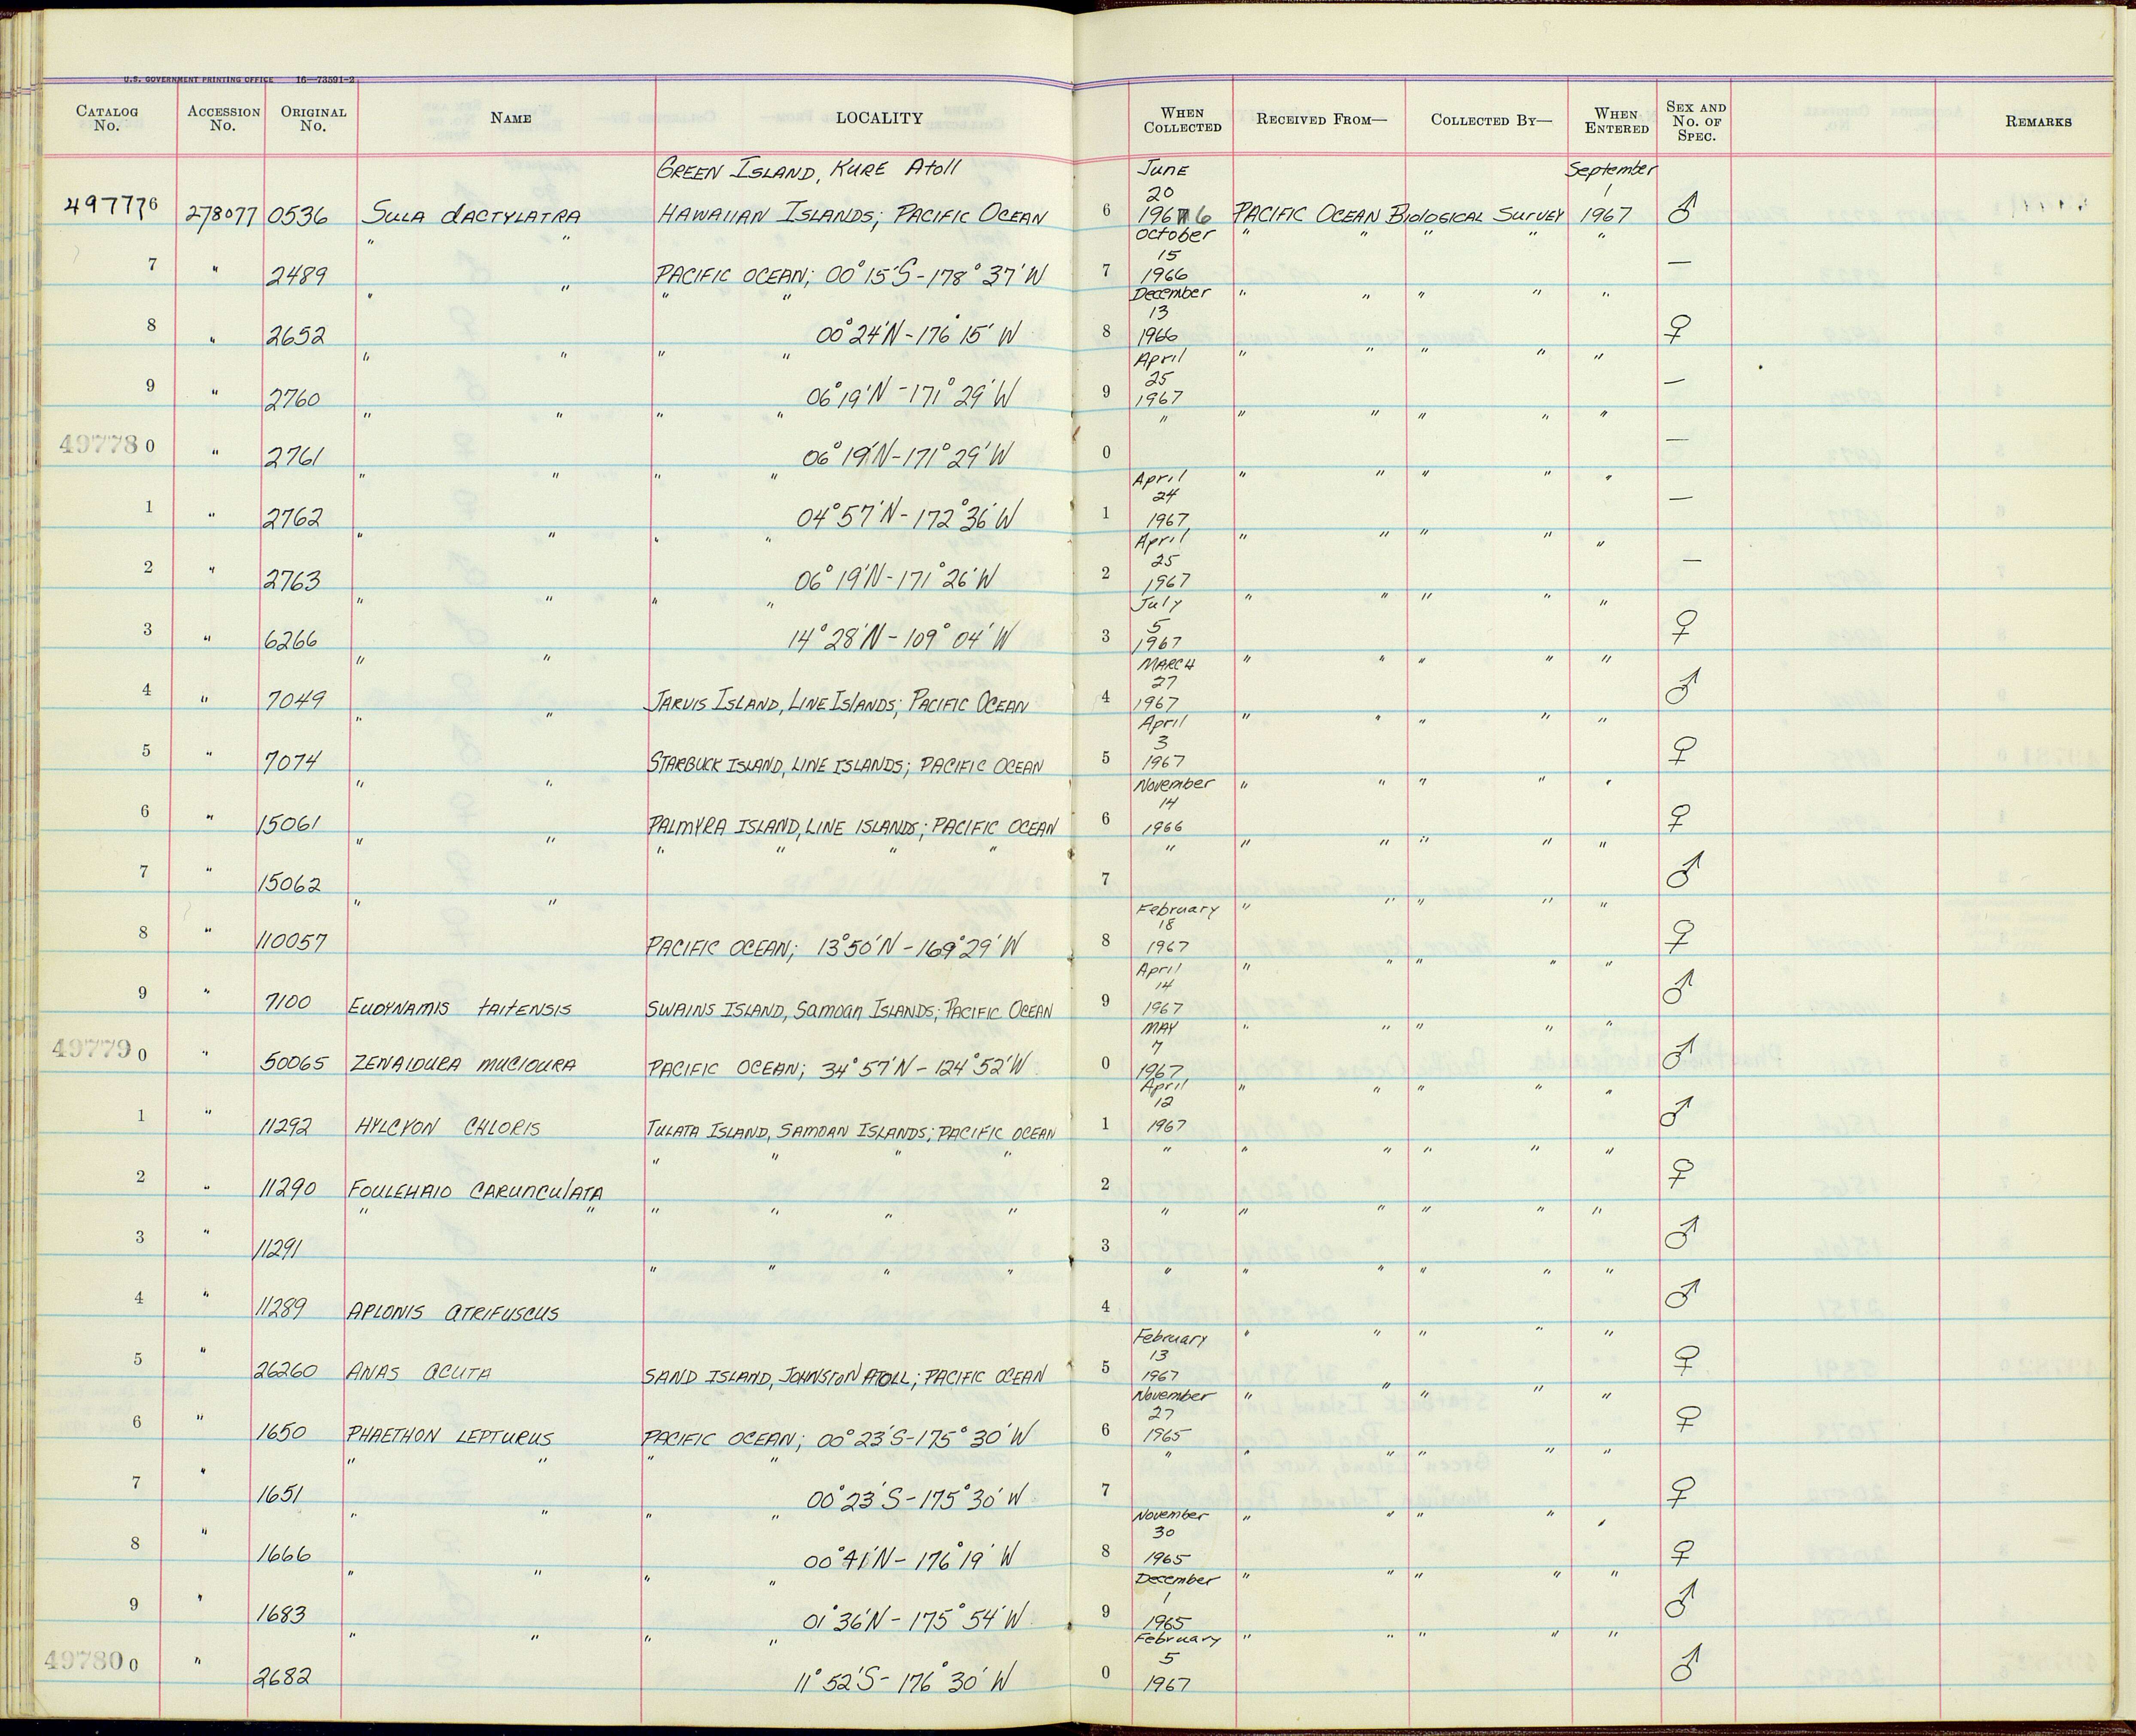 U.S. GOVERNMENT PRINTING OFFICE 16—73591-2
CATALOG No. ACCESSION No. ORIGINAL No. NAME LOCALITY WHEN COLLECTED RECEIVED FROM— COLLECTED BY— WHEN ENTERED SEX AND No. OF SPEC. REMARKS
GREEN ISLAND, KURE Atoll June September
20 1
497776 278077 0536 SULA dACTYLATRA HAWAIIAN ISLANDS; PACIFIC OCEAN 6 1966 PACIFIC OCEAN BiOlOGICAL SurVEY 1967 ♂
" " October " " " " "
15
7 " 2489 PACIFIC OCEAN; 00° 15'S - 178° 37' W 7 1966 —
" " " " December " " " " "
13
8 " 2652 00° 24'N - 176° 15' W 8 1966 ♀
" " " " April " " " " "
25
9 " 2760 06° 19'N - 171° 29' W 9 1967 —
" " " " " " " " " "
497780 " 2761 06° 19'N - 171° 29' W 0 —
" " " " April " " " " "
24
1 " 2762 04° 57'N - 172° 36' W 1 1967 —
" " " " April " " " " "
25
2 " 2763 06° 19'N - 171° 26' W 2 1967 —
" " " " July " " " " "
5
3 " 6266 14° 28'N - 109° 04' W 3 1967 ♀
" " MARCH " " " " "
27
4 " 7049 JARVIS ISLAND, LINE ISlANDS; PACIFIC OCEAN 4 1967 ♂
" " April " " " " "
3
5 " 7074 STARBUCK ISLAND, LINE ISLANDS; PACIFIC OCEAN 5 1967 ♀
" " November " " " " "
14
6 " 15061 PALMYRA ISLAND, LINE ISLANDS; PACIFIC OCEAN 6 1966 ♀
" " " " " " " " " " " "
7 " 15062 7 ♂
" " February " " " " "
18
8 " 110057 PACIFIC OCEAN; 13° 50'N - 169° 29' W 8 1967 ♀
April " " " " "
14
9 " 7100 EUDYNAMIS tAITENSIS SWAINS ISLAND, SAMOAN ISLANDS; PACIFIC OCEAN 9 1967 ♂
MAY " " " " "
7
497790 " 50065 ZENAIDURA MUCIOURA PACIFIC OCEAN; 34° 57'N - 124° 52' W 0 1967 ♂
April " " " " "
12
1 " 11292 HYLCYON CHLORIS TULATA ISLAND, SAMOAN ISLANDS; PACIFIC OCEAN 1 1967 ♂
" " " " " " " " " "
2 " 11290 FOULEHAIO CARUNCUlATA 2 ♀
" " " " " " " " " " " "
3 " 11291 3 ♂
" " " " " " " " " "
4 " 11289 APLONIS ATRIFUSCUS 4 ♂
February " " " " "
13
5 " 26260 ANAS ACUTA SAND ISLAND, JOHNSTON ATOLL; PACIFIC OCEAN 5 1967 ♀
November " " " " "
27
6 " 1650 PHAETHON LEPTURUS PACIFIC OCEAN; 00° 23'S - 175° 30' W 6 1965 ♀
" " " " " " " " " "
7 " 1651 00° 23'S - 175° 30' W 7 ♀
" " " " November " " " " "
30
8 " 1666 00° 41'N - 176° 19' W 8 1965 ♀
" " " " December " " " " "
1
9 " 1683 01° 36'N - 175° 54' W 9 1965 ♂
" " " " February " " " " "
5
497800 " 2682 11° 52'S - 176° 30' W 0 1967 ♂